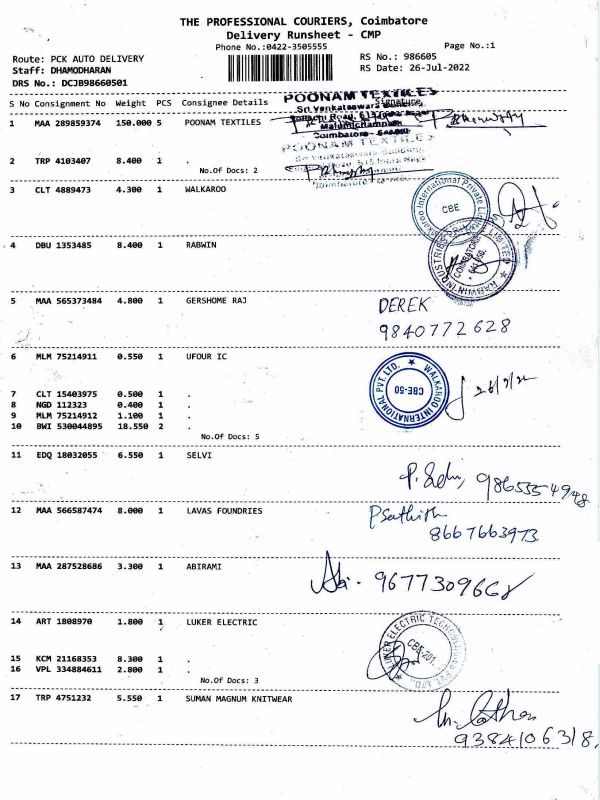 THE PROFESSIONAL COURIERS, Coimbatore
Delivery Runsheet - CMP
Phone No.:0422-3505555 Page No.:1
Route: PCK AUTO DELIVERY RS No.: 986605
Staff: DHAMODHARAN RS Date: 26-Jul-2022
DRS No.: DCJB98660501
S No Consignment No Weight PCS Consignee Details Signature
POONAM TEXTILES
Sri Venkateswara Building
Coimbatore
1 MAA 289859374 150.000 5 POONAM TEXTILES
POONAM TEXTILES
2 TRP 4103407 8.400 1 .
No.Of Docs: 2
3 CLT 4889473 4.300 1 WALKAROO
Walkaroo International Private Limited
CBE
4 DBU 1353485 8.400 1 RABWIN
RABWIN INDUSTRIES LIMITED
COIMBATORE
5 MAA 565373484 4.800 1 GERSHOME RAJ
DEREK
9840772628
6 MLM 75214911 0.550 1 UFOUR IC
WALKAROO INTERNATIONAL PVT. LTD.
CBE-50
26/7/22
7 CLT 15403975 0.500 1 .
8 NGD 112323 0.400 1 .
9 MLM 75214912 1.100 1 .
10 BWI 530044895 18.550 2 .
No.Of Docs: 5
11 EDQ 18032055 6.550 1 SELVI
P. Selvi, 9865554948
12 MAA 566587474 8.000 1 LAVAS FOUNDRIES
P Sathish
8667663973
13 MAA 287528686 3.300 1 ABIRAMI
Abi. 9677309668
14 ART 1808970 1.800 1 LUKER ELECTRIC
LUKER ELECTRIC TECHNOLOGIES PVT. LTD.
CBE-201
15 KCM 21168353 8.300 1 .
16 VPL 334884611 2.800 1 .
No.Of Docs: 3
17 TRP 4751232 5.550 1 SUMAN MAGNUM KNITWEAR
9384106318